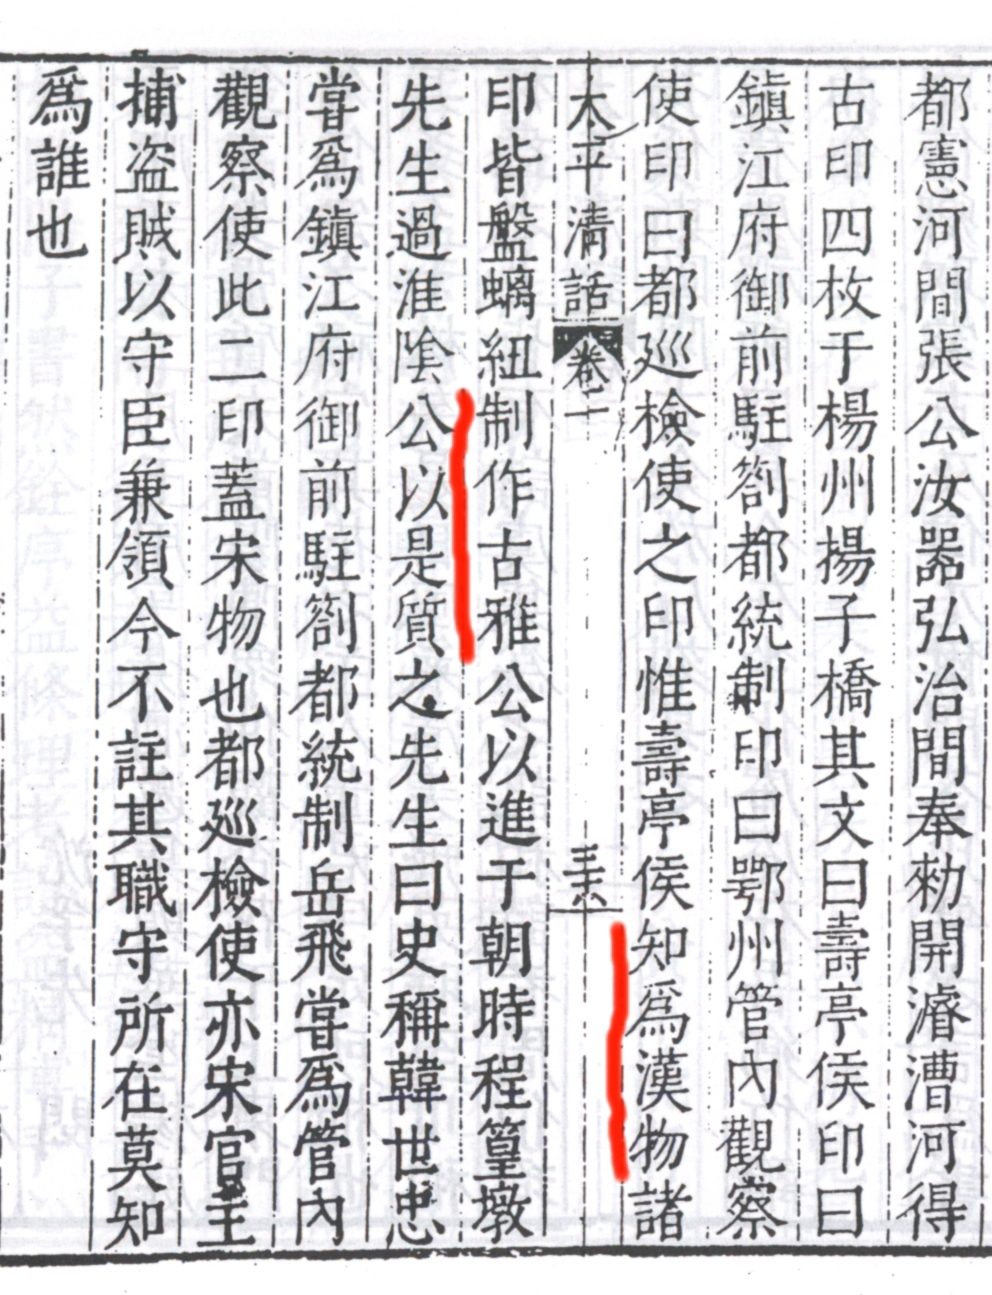 都憲河間張公汝器弘治間奉勑開濬漕河得
古印四枚于楊州揚子橋其文曰壽亭侯印曰
鎮江府御前駐劄都統制印曰鄂州管內觀察
使印曰都巡檢使之印惟壽亭侯知爲漢物諸
太平清話 卷一
印皆盤螭紐制作古雅公以進于朝時程篁墩
先生過淮陰公以是質之先生曰史稱韓世忠
嘗爲鎮江府御前駐劄都統制岳飛嘗爲管內
觀察使此二印蓋宋物也都巡檢使亦宋官主
捕盜賊以守臣兼領今不註其職守所在莫知
爲誰也